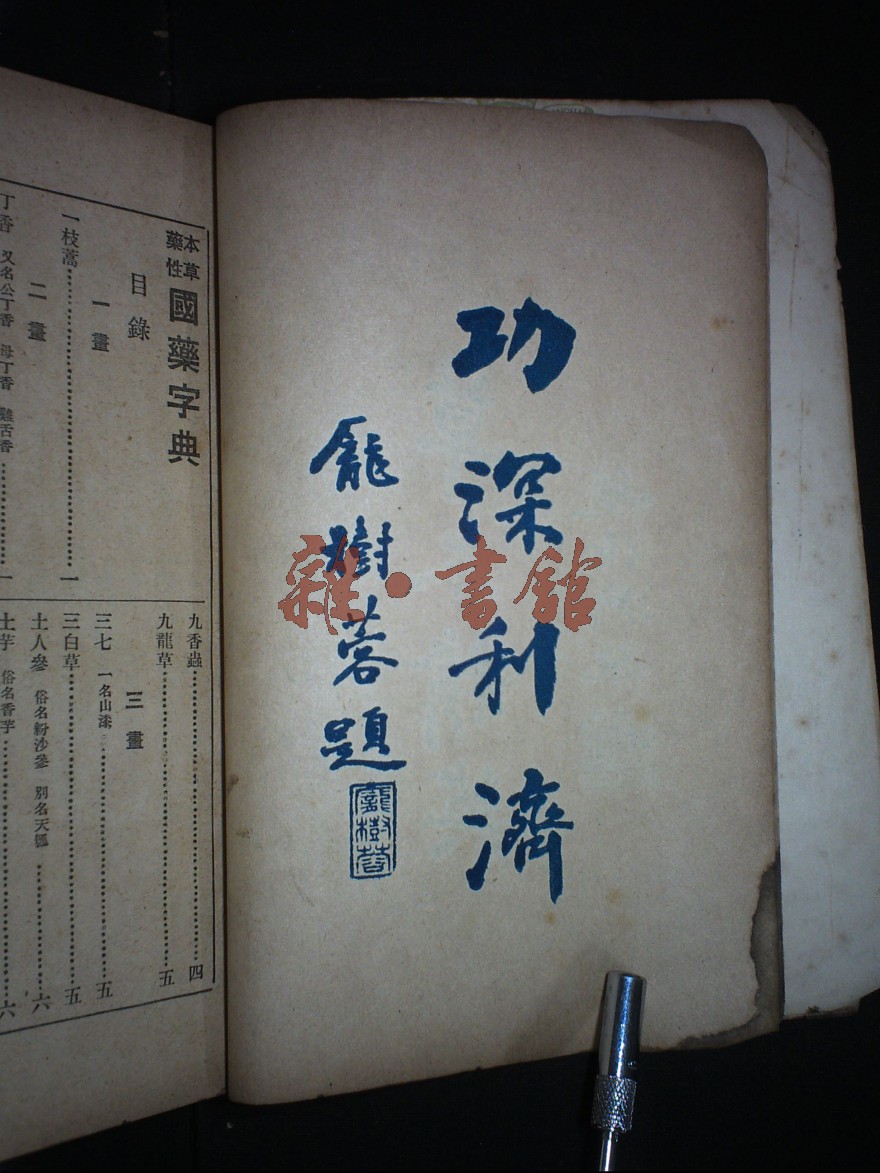 功深利濟
龐樹蓉題
龐樹蓉
雜·書館
本草藥性國藥字典
目錄
一畫
一枝蒿……一
二畫
丁香 又名公丁香 母丁香 雞舌香……一
九香蟲……四
九龍草……五
三畫
三七 一名山漆……五
三白草……五
土人參 俗名粉沙參 別名天瓠……六
土芋 俗名香芋……六